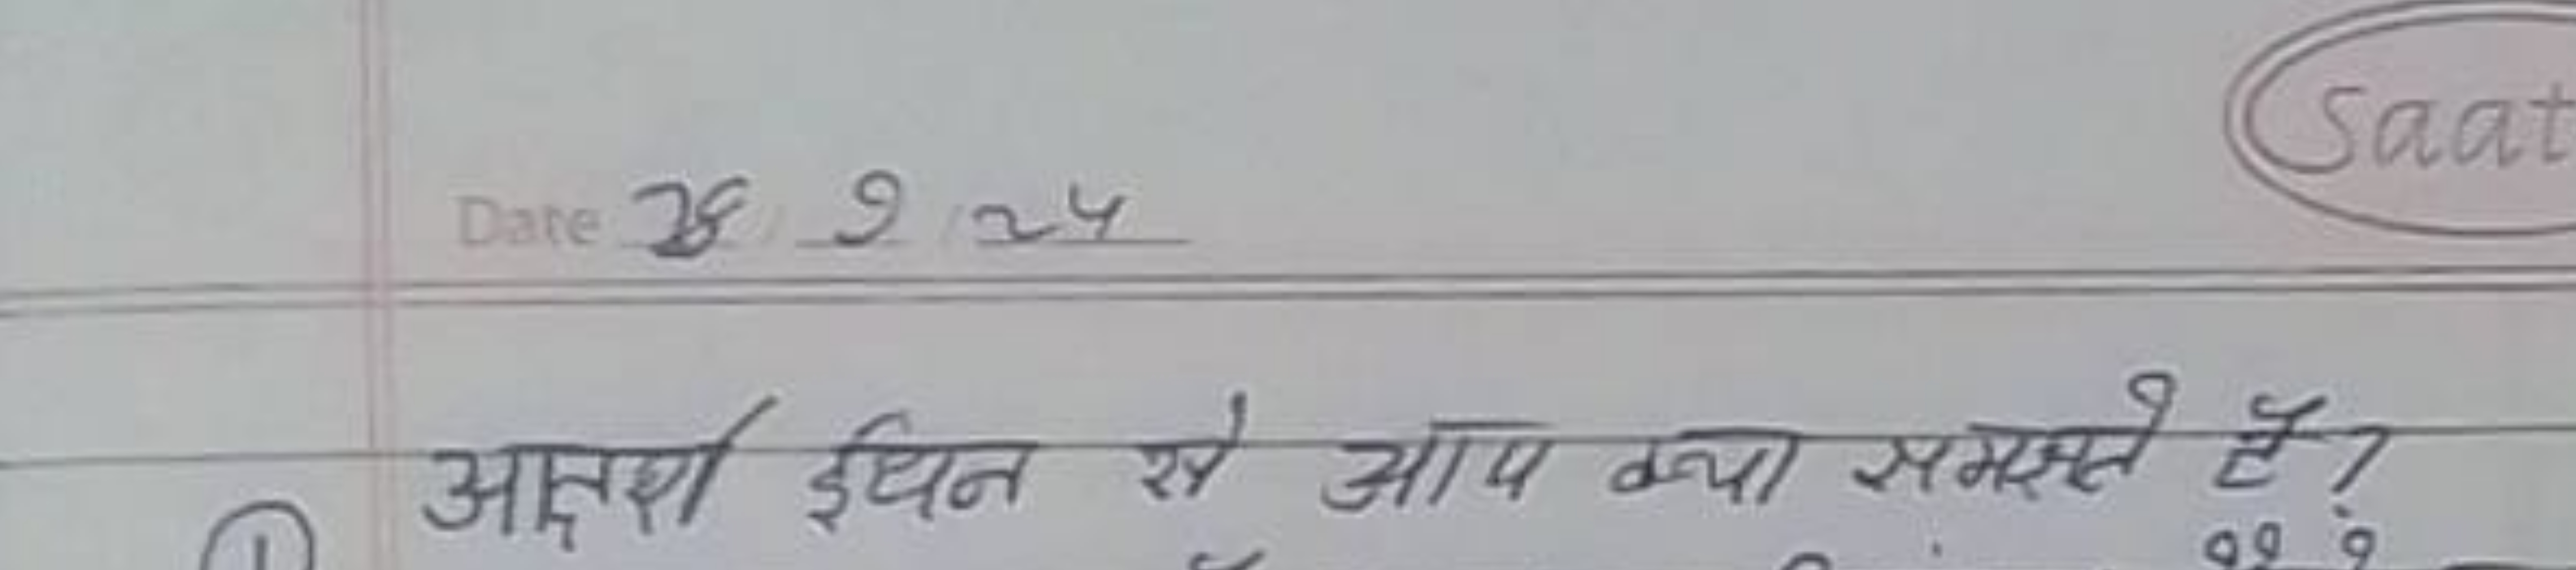 Saat
Date 28 / 9 / 24
आदर्श ईधन से आप क्या समझते हैं?
①